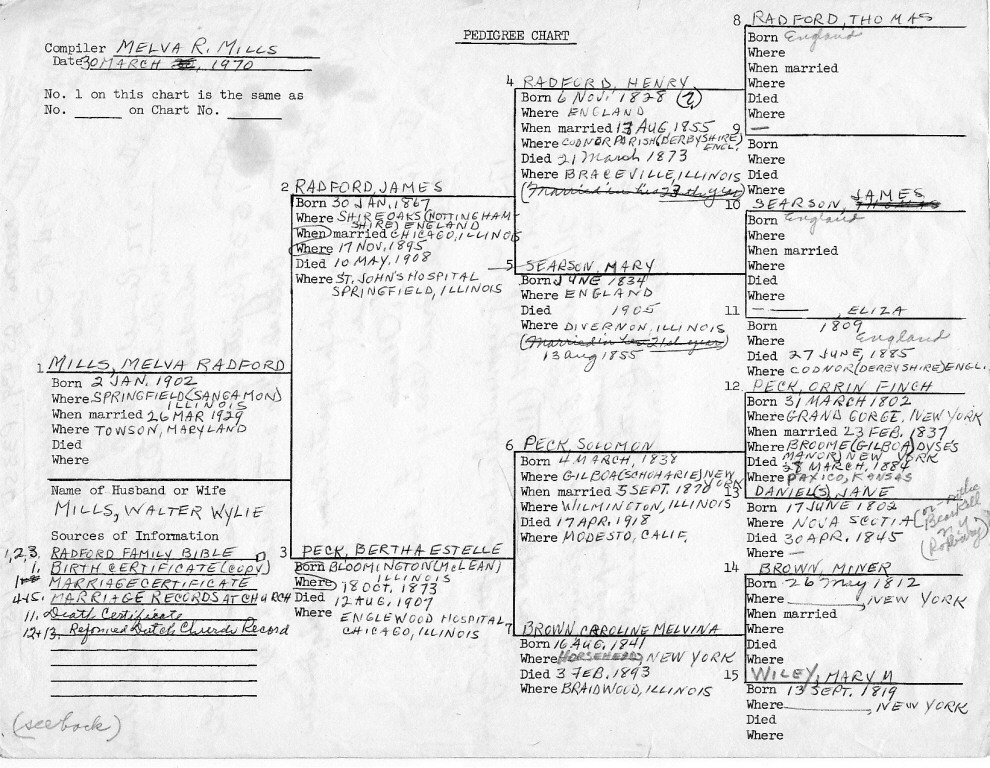 PEDIGREE CHART
Compiler MELVA R. MILLS
Date 30 MARCH, 1970
No. 1 on this chart is the same as
No. ______ on Chart No. ______
1 MILLS, MELVA RADFORD
Born 2 JAN. 1902
Where SPRINGFIELD (SANGAMON)
ILLINOIS
When married 26 MAR 1929
Where TOWSON, MARYLAND
Died
Where
Name of Husband or Wife
MILLS, WALTER WYLIE
Sources of Information
1,2,3. RADFORD FAMILY BIBLE
1. BIRTH CERTIFICATE (COPY)
MARRIAGE CERTIFICATE
4+5. MARRIAGE RECORDS AT CHURCH
11. Death Certificate
12+13. Reformed Dutch Church Record
(see back)
2 RADFORD, JAMES
Born 30 JAN. 1867
Where SHIREOAKS (NOTTINGHAM-
SHIRE) ENGLAND
When married CHICAGO, ILLINOIS
Where 17 NOV. 1895
Died 10 MAY. 1908
Where ST. JOHN'S HOSPITAL
SPRINGFIELD, ILLINOIS
3 PECK, BERTHA ESTELLE
Born BLOOMINGTON (McLEAN)
ILLINOIS
Where 18 OCT. 1873
Died 12 AUG. 1907
Where ENGLEWOOD HOSPITAL,
CHICAGO, ILLINOIS
4 RADFORD, HENRY
Born 6 NOV. 1828 (?)
Where ENGLAND
When married 13 AUG. 1855
Where CODNOR PARISH (DERBYSHIRE)
ENGL.
Died 21 March 1873
Where BRACEVILLE, ILLINOIS
(Married in his 23th year)
5 SEARSON, MARY
Born JUNE 1834
Where ENGLAND
Died 1905
Where DIVERNON, ILLINOIS
(Married in her 21st year)
13 Aug 1855
6 PECK, SOLOMON
Born 4 MARCH, 1838
Where GILBOA (SCHOHARIE) NEW
YORK
When married 5 SEPT. 1870
Where WILMINGTON, ILLINOIS
Died 17 APR. 1918
Where MODESTO, CALIF.
7 BROWN CAROLINE MELVINA
Born 16 AUG. 1841
Where HORSEHEADS, NEW YORK
Died 3 FEB. 1893
Where BRAIDWOOD, ILLINOIS
8 RADFORD, THOMAS
Born England
Where
When married
Where
Died
Where
9 —
Born
Where
Died
Where
10 SEARSON, JAMES THOMAS
Born England
Where
When married
Where
Died
Where
11 ———, ELIZA
Born 1809
Where England
Died 27 JUNE, 1885
Where CODNOR (DERBYSHIRE) ENGL.
12. PECK, ORRIN FINCH
Born 31 MARCH 1802
Where GRAND GORGE, NEW YORK
When married 23 FEB. 1837
Where BROOME (GILBOA) DYSES
MANOR) NEW YORK
Died 28 MARCH, 1884
Where PAXICO, KANSAS
13 DANIEL(S), JANE
Born 17 JUNE 1802
Where NOVA SCOTIA
Died 30 APR. 1845
Where —
N Y
(Roxbury)
14 BROWN, MINER
Born 26 May 1812
Where ______, NEW YORK
When married
Where
Died
Where
15 WILEY, MARY
Born 13 SEPT. 1819
Where ______, NEW YORK
Died
Where